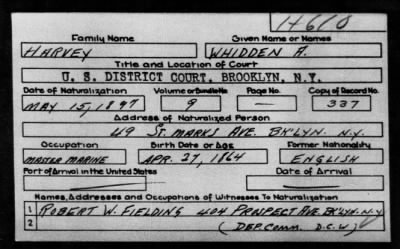 14618
Family Name Given Name or Names
HARVEY WHIDDEN A.
Title and Location of Court
U. S. DISTRICT COURT, BROOKLYN, N.Y.
Date of Naturalization Volume or Bundle No. Page No. Copy of Record No.
MAY 15, 1897 9 — 337
Address of Naturalized Person
49 St. MARKS AVE. BK'LYN. N.Y.
Occupation Birth Date or Age Former Nationality
MASTER MARINE APR. 27, 1864 ENGLISH
Port of Arrival in the United States Date of Arrival
Names, Addresses and Occupations of Witnesses To Naturalization
1 ROBERT W. FIELDING 404 PROSPECT AVE. BK'LYN. N.Y.
2 (DEP. COMM. D.C.W.)